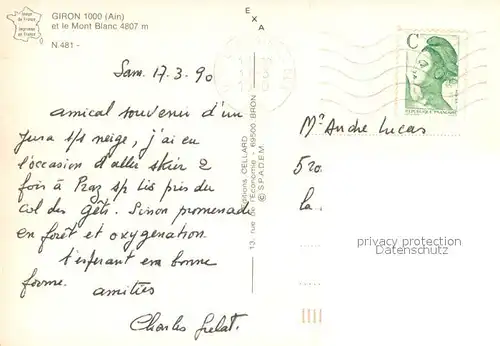 GIRON 1000 (Ain)
et le Mont Blanc 4807 m
N.481 -
Sam. 17.3.90
amical souvenir d'un
Jura s/s neige, j'ai eu
l'occasion d'aller skier 2
fois à Praz sp Lis près du
col des Gêts. Sinon promenade
en forêt et oxygenation.
t'espérant en bonne
forme.
amitiés
Charles
EXA
Editions CELLARD
13, rue de l'Economie - 69500 BRON
© S.P.A.D.E.M.
C
REPUBLIQUE FRANÇAISE
Mr Andre Lucas
520
La
privacy protection
Datenschutz